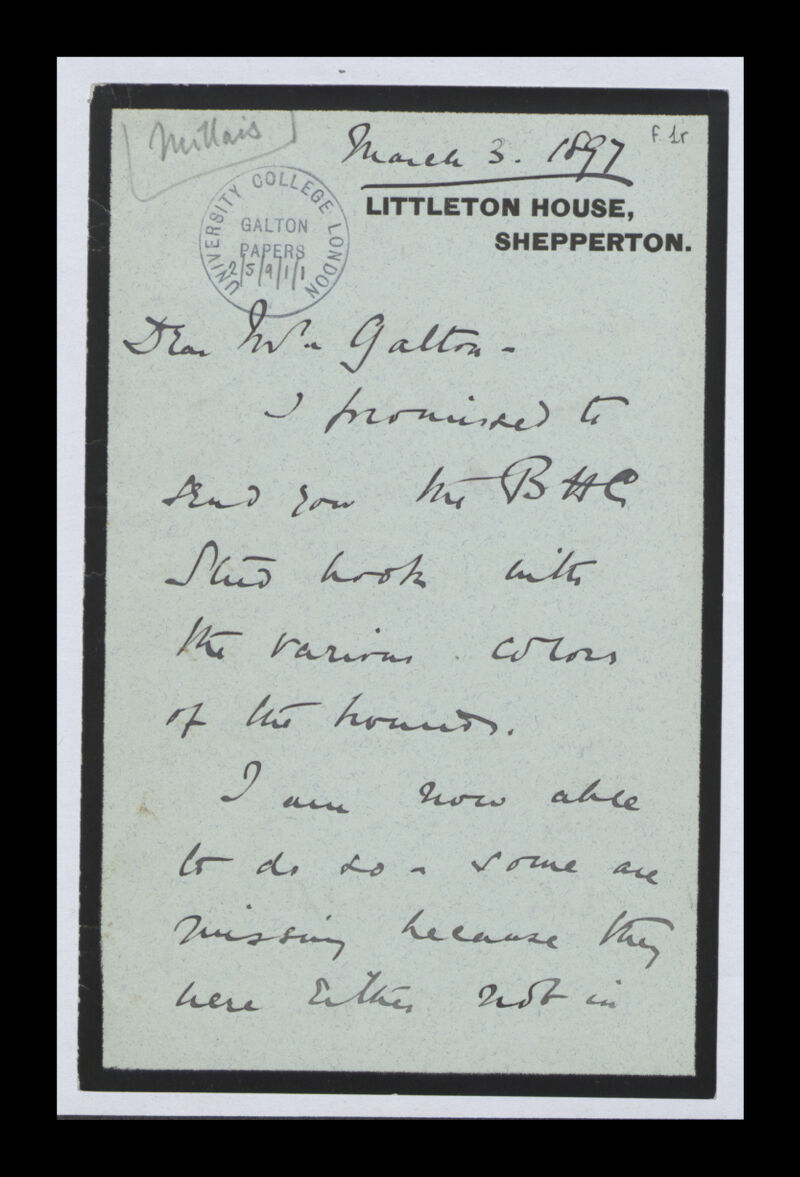 Millais
f. 1r
March 3. 1897
LITTLETON HOUSE,
SHEPPERTON.
UNIVERSITY COLLEGE LONDON
GALTON
PAPERS
2/5/9/1/1
Dear Mr. Galton -
I promised to
send you the BHC
Stud book with
the various colors
of the hounds.
I am now able
to do so - some are
missing because they
were Either not in